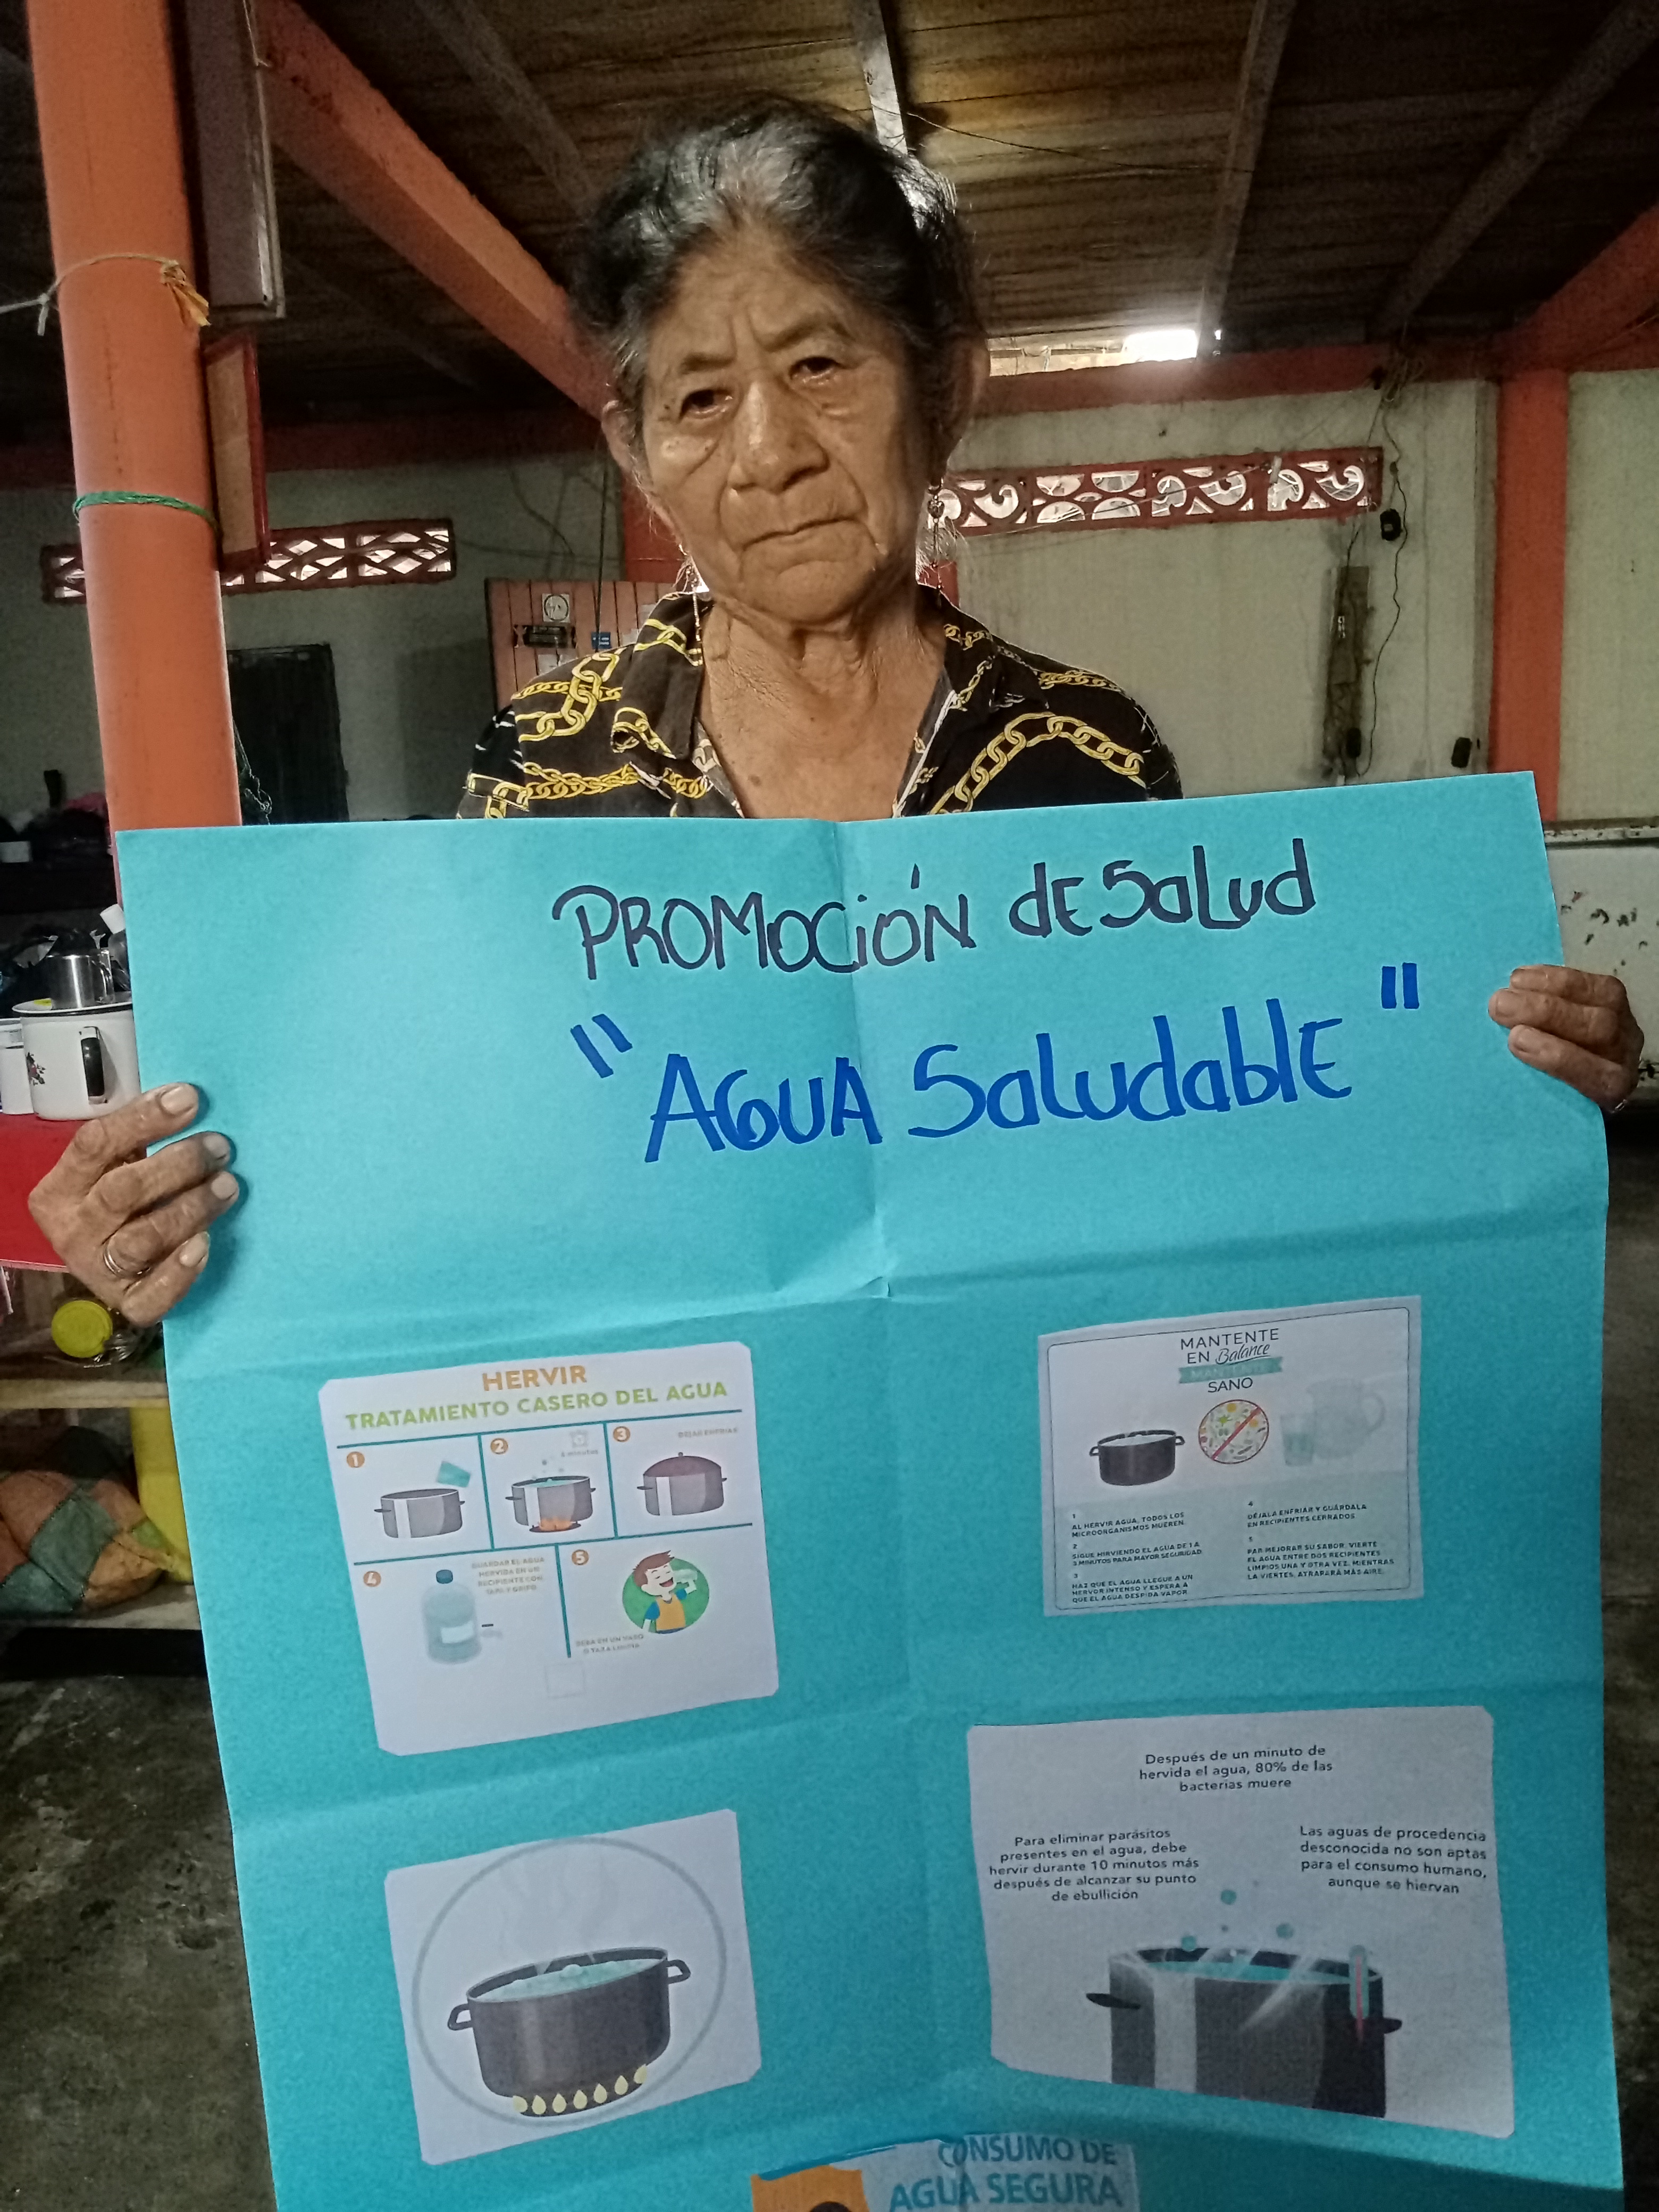 PROMOCIÓN dE Salud
"AGUA SaludablE"
HERVIR
TRATAMIENTO CASERO DEL AGUA
1
2
3
DEJAR ENFRIAR
4
GUARDAR EL AGUA
HERVIDA EN UN
RECIPIENTE CON
TAPA Y GRIFO
5
BEBA EN UN VASO
O TAZA LIMPIA
MANTENTE
EN Balance
SANO
1
AL HERVIR AGUA, TODOS LOS
MICROORGANISMOS MUEREN.
2
SIGUE HIRVIENDO EL AGUA DE 1 A
3 MINUTOS PARA MAYOR SEGURIDAD
3
HAZ QUE EL AGUA LLEGUE A UN
HERVOR INTENSO Y ESPERA A
QUE EL AGUA DESPIDA VAPOR
4
DÉJALA ENFRIAR Y GUÁRDALA
EN RECIPIENTES CERRADOS
5
PAR MEJORAR SU SABOR, VIERTE
EL AGUA ENTRE DOS RECIPIENTES
LIMPIOS UNA Y OTRA VEZ. MIENTRAS
LA VIERTES, ATRAPARÁ MÁS AIRE.
Después de un minuto de
hervida el agua, 80% de las
bacterias muere
Para eliminar parásitos
presentes en el agua, debe
hervir durante 10 minutos más
después de alcanzar su punto
de ebullición
Las aguas de procedencia
desconocida no son aptas
para el consumo humano,
aunque se hiervan
CONSUMO DE
AGUA SEGURA